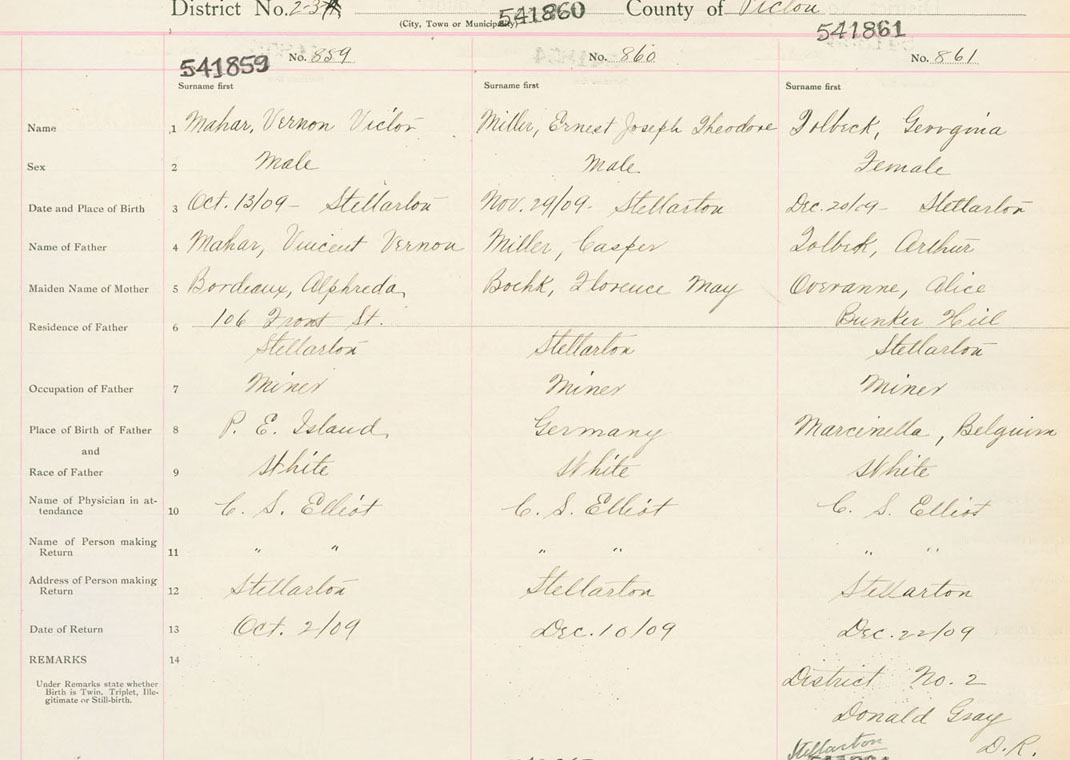 District No. 2-3 541860 County of Pictou
(City, Town or Municipality) 541861
541859 No. 859 No. 860 No. 861
Surname first Surname first Surname first
Name 1 Mahar, Vernon Victor Miller, Ernest Joseph Theodore Tolbeck, Georgina
Sex 2 Male Male Female
Date and Place of Birth 3 Oct. 13/09 - Stellarton Nov. 29/09 - Stellarton Dec. 20/19 - Stellarton
Name of Father 4 Mahar, Vincent Vernon Miller, Casper Tolbeck, Arthur
Maiden Name of Mother 5 Bordeaux, Alphreda, Boehk, Florence May Overanne, Alice
Residence of Father 6 106 Front St. Bunker Hill
Stellarton Stellarton Stellarton
Occupation of Father 7 Miner Miner Miner
Place of Birth of Father 8 P. E. Island, Germany Marcinella, Belguim
and
Race of Father 9 White White White
Name of Physician in at- C. S. Elliot C. S. Elliot C. S. Elliot
tendance 10
Name of Person making
Return 11 " " " " " "
Address of Person making Stellarton Stellarton Stellarton
Return 12
Date of Return 13 Oct. 2/09 Dec. 10/09 Dec. 22/09
REMARKS 14
Under Remarks state whether District No. 2
Birth is Twin, Triplet, Ille-
gitimate or Still-birth.
Donald Gray
Stellarton D.R.